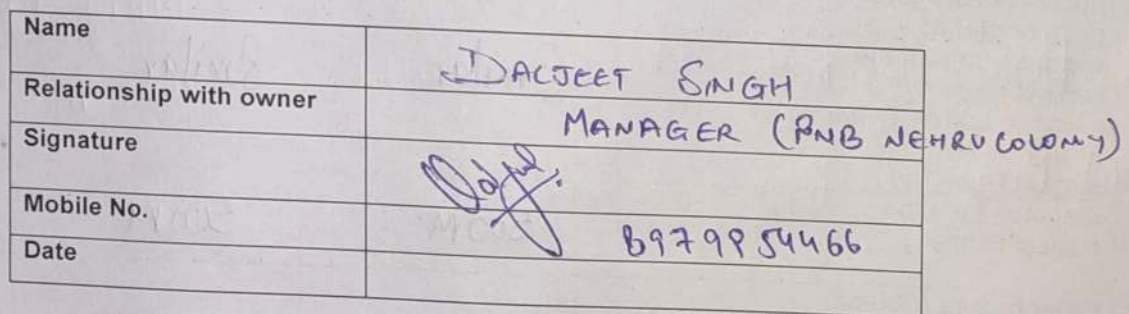 Name DALJEET SINGH
Relationship with owner MANAGER (PNB NEHRU COLOMY)
Signature
Mobile No. 8979954466
Date